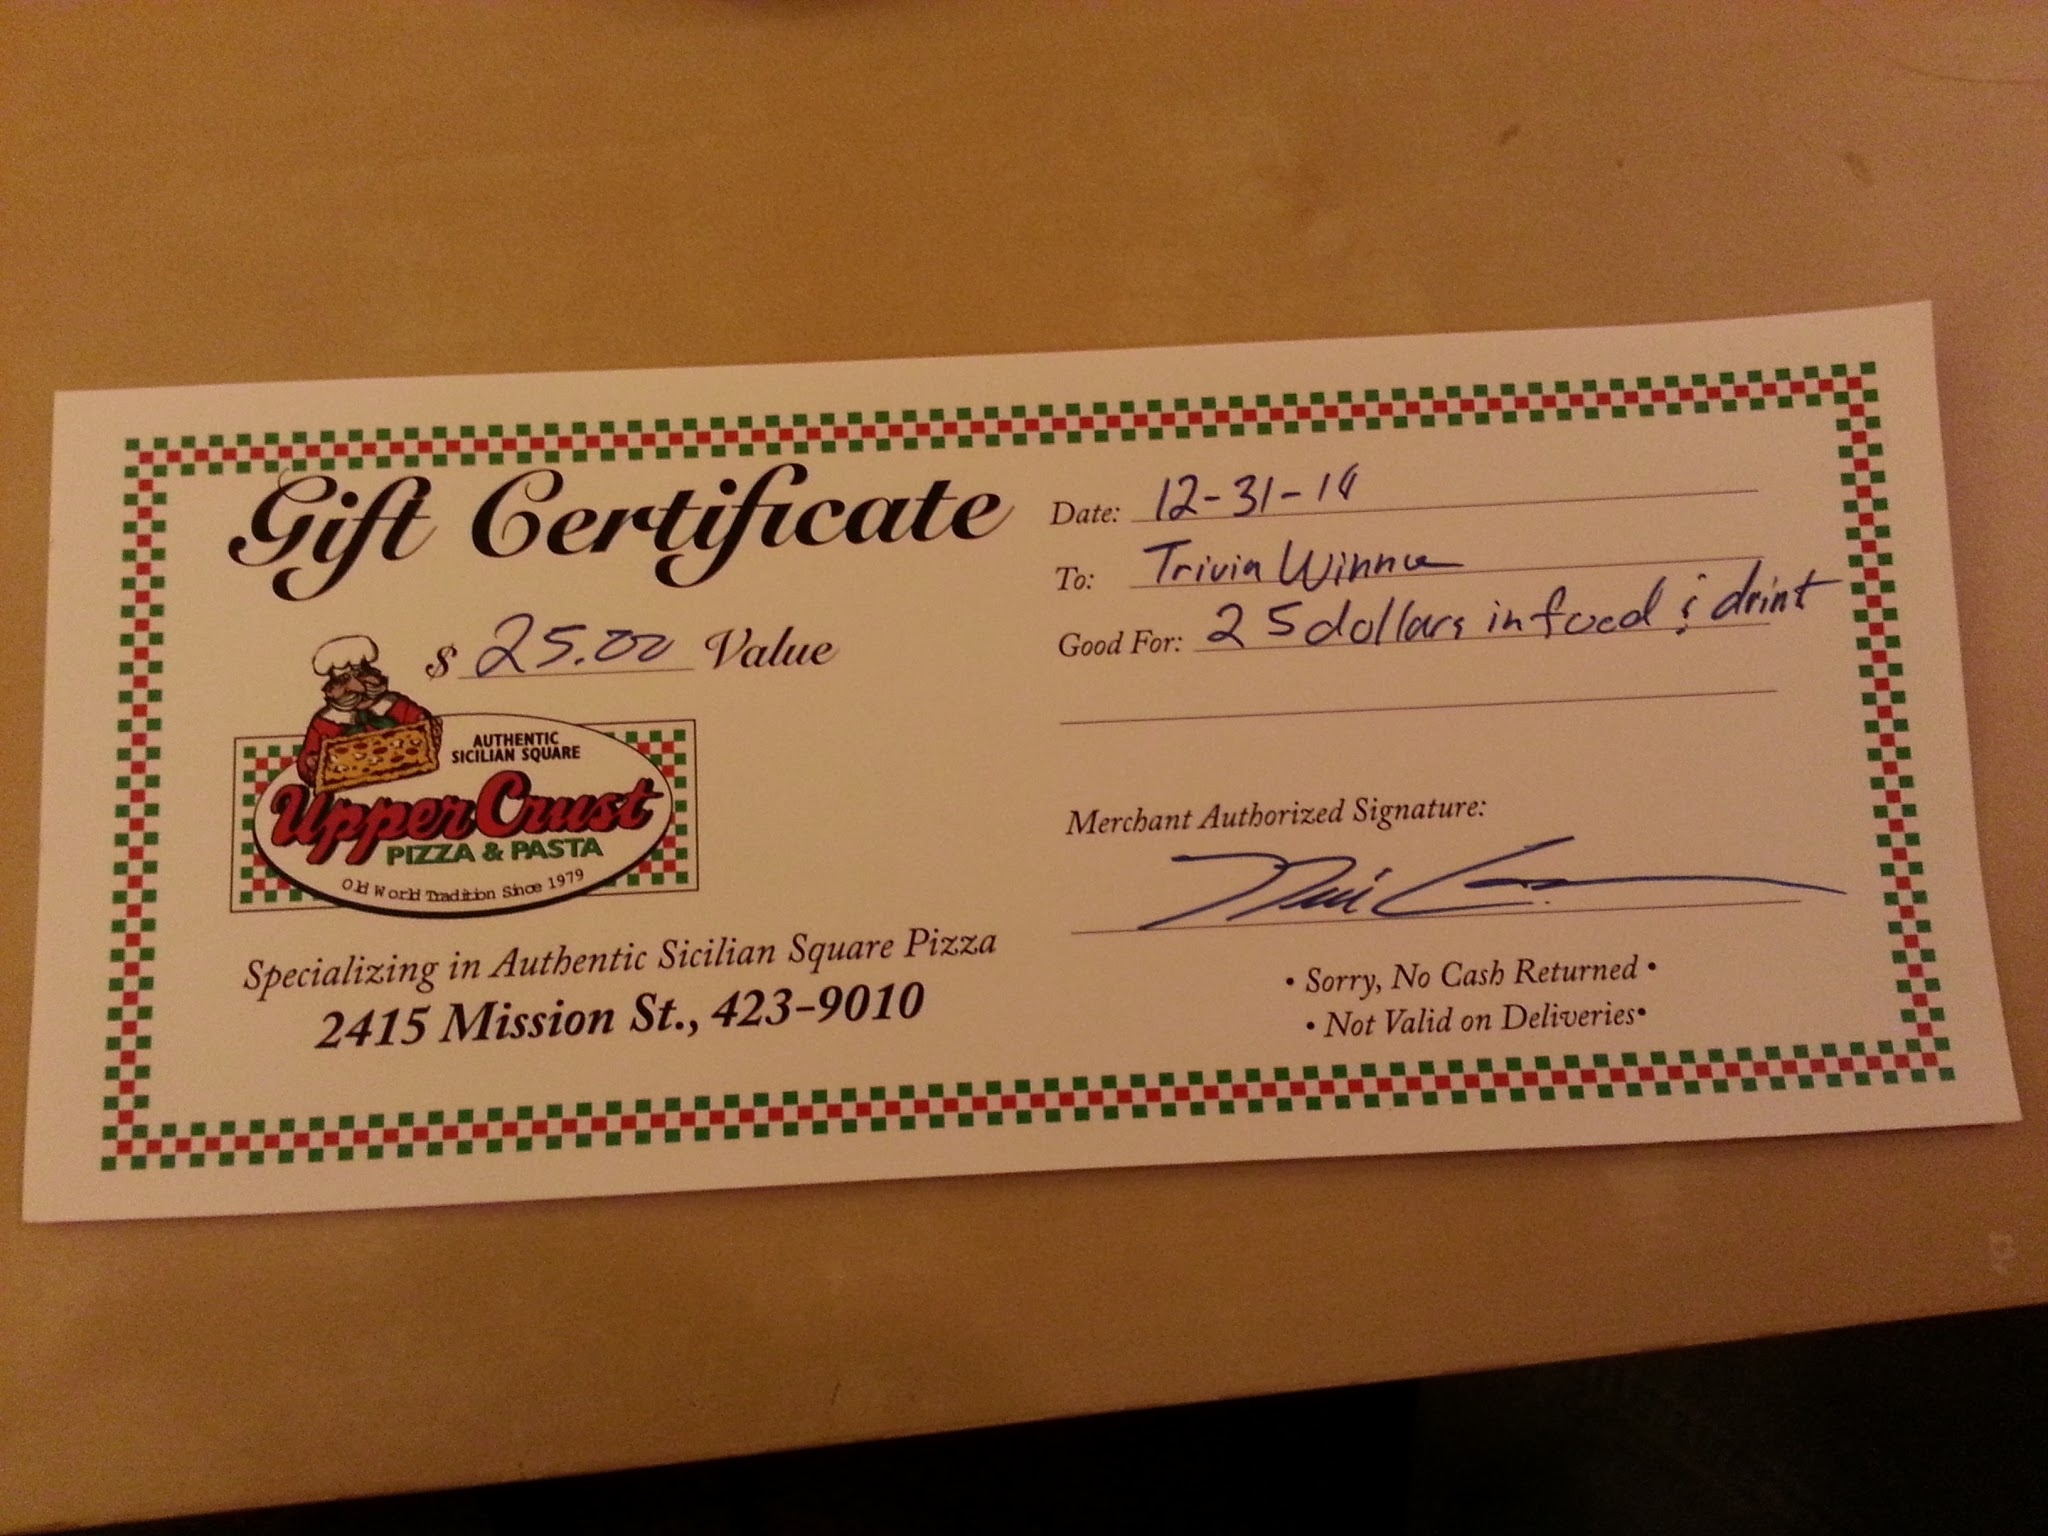 Gift Certificate
$ 25.00 Value
AUTHENTIC
SICILIAN SQUARE
Upper Crust
PIZZA & PASTA
Old World Tradition Since 1979
Specializing in Authentic Sicilian Square Pizza
2415 Mission St., 423-9010
Date: 12-31-
To: Trivia Winner
Good For: 25 dollars in food & drink
Merchant Authorized Signature:
• Sorry, No Cash Returned •
• Not Valid on Deliveries•